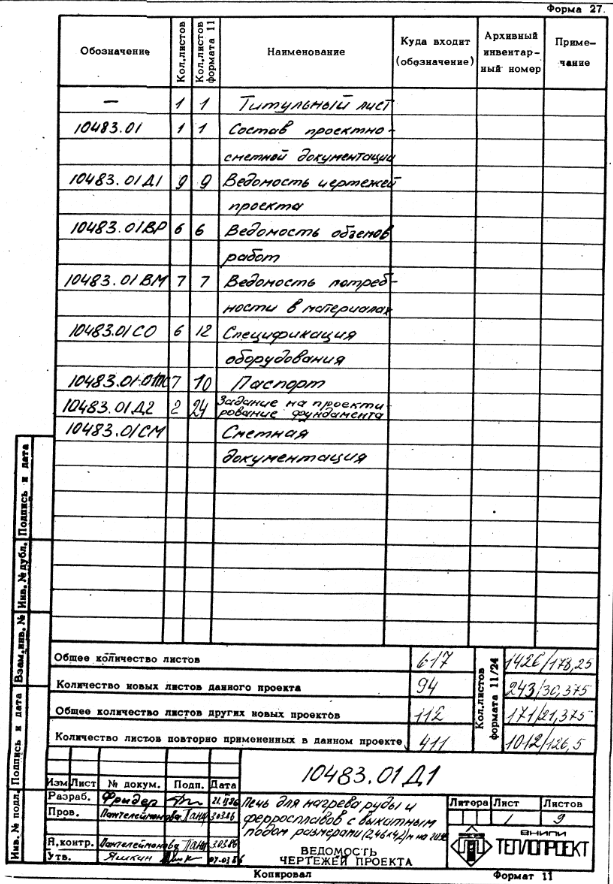 Форма 27.
Обозначение Кол.листов Кол.листов формата 11 Наименование Куда входит (обозначение) Архивный инвентар-ный номер Приме-чание
— 1 1 Титульный лист
10483.01 1 1 Состав проектно-
сметной документации
10483.01Д1 9 9 Ведомость чертежей
проекта
10483.01ВР 6 6 Ведомость объемов
работ
10483.01ВМ 7 7 Ведомость потреб-
ности в материалах
10483.01СО 6 12 Спецификация
оборудования
7 10 Паспорт
10483.01Д2 2 24 Задание на проекти-
рование фундамента
10483.01СМ Сметная
документация
Общее количество листов 617 Кол.листов формата 11/24 1426/178,25
Количество новых листов данного проекта 94 243/30,375
Общее количество листов других новых проектов 112 171/21,375
Количество листов повторно примененных в данном проекте 411 1012/126,5
10483.01Д1
Изм Лист № докум. Подп. Дата
Разраб. Фридер
Пров. Пантелеймонова
Н.контр. Пантелеймонова
Утв. Яшкин
Печь для нагрева руды и
ферросплавов с выкатным
подом размерами
ВЕДОМОСТЬ
ЧЕРТЕЖЕЙ ПРОЕКТА
Литера Лист Листов
1 9
ВНИПИ
ТЕПЛОПРОЕКТ
Копировал Формат 11
Инв. № подл. Подпись и дата Взам.инв. № Инв. № дубл. Подпись и дата